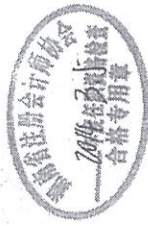 湖南省注册会计师协会
2014.3.5
年度任职资格检查
合格专用章